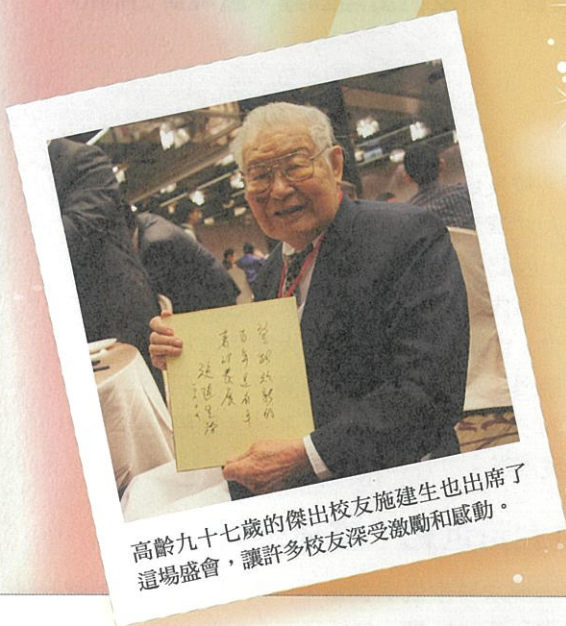 的
百年
發展
高齡九十七歲的傑出校友施建生也出席了
這場盛會,讓許多校友深受激勵和感動。